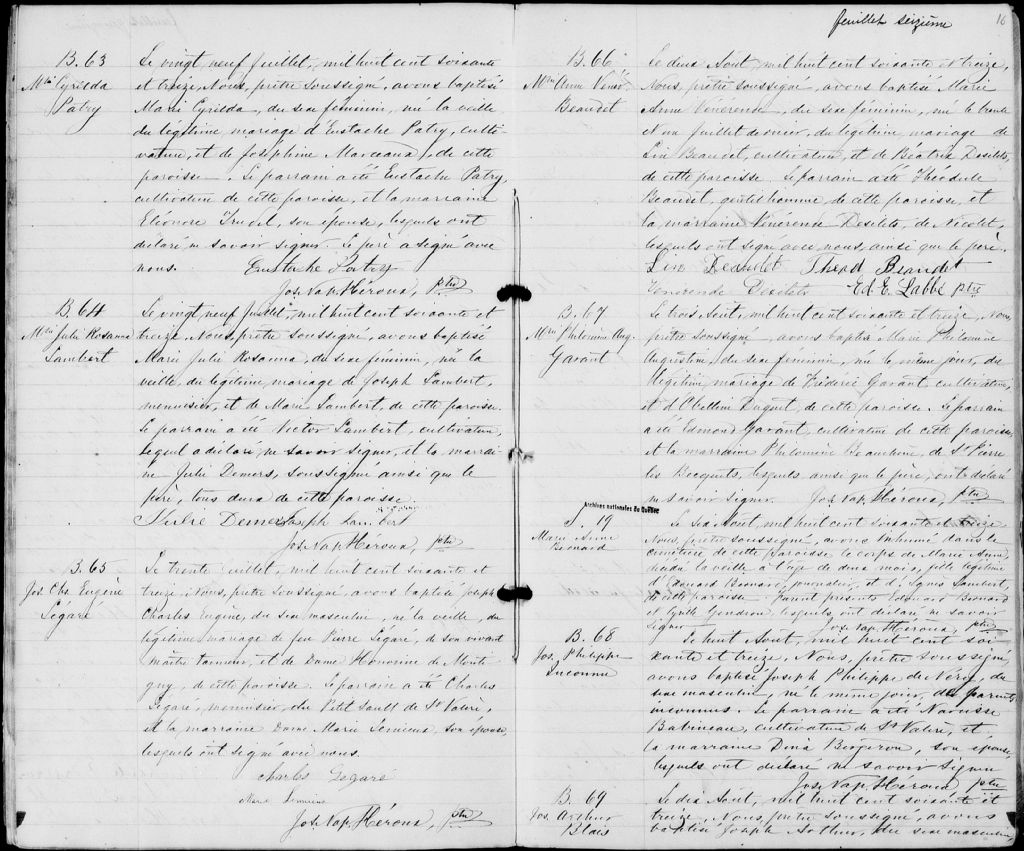 feuillet seizième
16
B. 63
Mie Cyrilda
Patry
Le vingt neuf Juillet, mil huit cent soixante
et treize, Nous, prêtre soussigné, avons baptisé
Marie Cyrilda, du sexe féminin, née la veille
du légitime mariage d'Eustache Patry, culti-
vateur, et de Joséphine Marceaux, de cette
paroisse. Le parrain a été Eustache Patry,
cultivateur de cette paroisse, et la marraine
Eléonore Trudel, son épouse, lesquels ont
déclaré ne savoir signer. Le père a signé avec
nous. Eustache Patry
Jos. Nap. Héroux, ptre
B. 64
Mie Julie Rosanna
Lambert
Le vingt neuf Juillet, mil huit cent soixante et
treize, Nous, prêtre soussigné, avons baptisé
Marie Julie Rosanna, du sexe féminin, née la
veille, du légitime mariage de Joseph Lambert,
menuisier, et de Marie Lambert, de cette paroisse.
Le parrain a été Victor Lambert, cultivateur,
lequel a déclaré ne savoir signer, et la marrai-
ne Julie Demers, soussignée ainsi que le
père, tous deux de cette paroisse.
Julie Demers Joseph Lambert
Jos. Nap. Héroux, ptre
B. 65
Jos. Chs. Eugène
Légaré
Le trente Juillet, mil huit cent soixante et
treize, Nous, prêtre soussigné, avons baptisé Joseph
Charles Eugène, du sexe masculin, né la veille, du
légitime mariage de feu Pierre Légaré, de son vivant
maître tanneur, et de Dame Honorine de Monti-
gny, de cette paroisse. Le parrain a été Charles
Légaré, menuisier, du Petit Sault de St Valère,
et la marraine Dame Marie Lemieux, son épouse,
lesquels ont signé avec nous.
Charles Légaré
Marie Lemieux
Jos. Nap. Héroux, ptre
B. 66
Mie Anne Véné.
Beaudet
Le deux Août, mil huit cent soixante et treize,
Nous, prêtre soussigné, avons baptisé Marie
Anne Vénérende, du sexe féminin, née le trente
et un Juillet dernier, du légitime mariage de
Lin Beaudet, cultivateur, et de Béatrix Desilets,
de cette paroisse. Le parrain a été Théodule
Beaudet, gentilhomme, de cette paroisse, et
la marraine Vénérende Desilets, de Nicolet,
lesquels ont signé avec nous, ainsi que le père.
Lin Beaudet Theod Beaudet
Venerende Desilets Ed. E. Labbé ptre
B. 67
Mie Philomène Aug.
Garant
Le trois Août, mil huit cent soixante et treize, Nous,
prêtre soussigné, avons baptisé Marie Philomène
Augustine, du sexe féminin, née le même jour, du
légitime mariage de Frédéric Garant, cultivateur,
et d'Obeline Duguet, de cette paroisse. Le parrain
a été Edmond Garant, cultivateur de cette paroisse,
et la marraine Philomène Beauchene, de St Pierre
les Becquets, lesquels, ainsi que le père, ont déclaré
ne savoir signer. Jos. Nap. Héroux, ptre
Archives nationales du Québec
S. 19
Marie Anne
Besnard
Le six Août, mil huit cent soixante et treize,
Nous, prêtre soussigné, avons inhumé dans le
cimetière de cette paroisse le corps de Marie Anne,
décédée la veille à l'âge de deux mois, fille légitime
d'Edouard Besnard, journalier, et d'Agnès Lambert,
de cette paroisse. Furent présents Edouard Besnard
et Gendron, lesquels ont déclaré ne savoir
signer. Jos. Nap. Héroux, ptre
B. 68
Jos. Philippe
Inconnu
Le huit Août, mil huit cent soi-
xante et treize, Nous, prêtre soussigné,
avons baptisé Joseph Philippe de Néris, du
sexe masculin, né le même jour, de parents
inconnus. Le parrain a été Narcisse
Babineau, cultivateur de St Valère, et
la marraine Dina Bergeron, son épouse,
lesquels ont déclaré ne savoir signer.
Jos. Nap. Héroux, ptre
B. 69
Jos. Arthur
Blais
Le dix Août, mil huit cent soixante et
treize, Nous, prêtre soussigné, avons
baptisé Joseph Arthur, du sexe masculin,